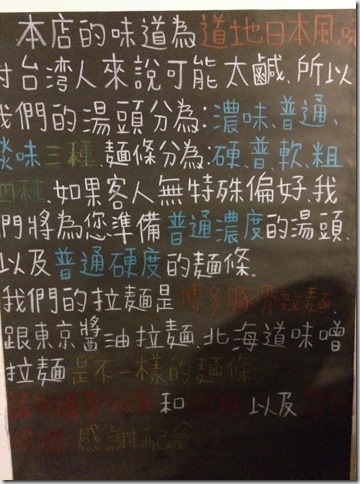 本店的味道為道地日本風味
對台湾人來說可能太鹹.所以
我們的湯頭分為:濃味、普通、
淡味三種.麵條分為:硬.普.軟.粗
四種.如果客人無特殊偏好.我
們將為您準備普通濃度的湯頭.
以及普通硬度的麵條。
我們的拉麵是博多豚骨拉麵.
跟東京醬油拉麵、北海道味噌
拉麵是不一樣的麵條
和 以及
感謝配合